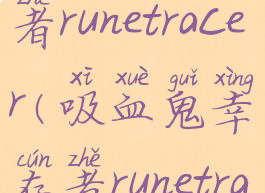 者runetrace
xī xuè guǐ xìng
r(吸血鬼幸
cún zhě
存者runetra